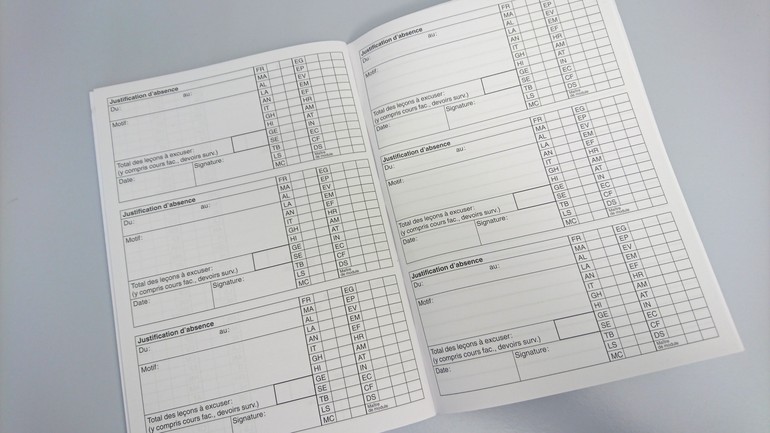 Justification d'absence
Du: au:
Motif:
Total des leçons à excuser:
(y compris cours fac., devoirs surv.)
Date: Signature:
FR EG
MA EP
AL EV
LA EM
AN EF
IT HR
GH AM
HI AT
GE IN
SE EC
TB CF
LS DS
MC Maître
de module
Justification d'absence
Du: au:
Motif:
Total des leçons à excuser:
(y compris cours fac., devoirs surv.)
Date: Signature:
FR EG
MA EP
AL EV
LA EM
AN EF
IT HR
GH AM
HI AT
GE IN
SE EC
TB CF
LS DS
MC Maître
de module
Justification d'absence
Du: au:
Motif:
Total des leçons à excuser:
(y compris cours fac., devoirs surv.)
Date: Signature:
FR EG
MA EP
AL EV
LA EM
AN EF
IT HR
GH AM
HI AT
GE IN
SE EC
TB CF
LS DS
MC Maître
de module
Justification d'absence
Du: au:
Motif:
Total des leçons à excuser:
(y compris cours fac., devoirs surv.)
Date: Signature:
FR
MA EP
AL EV
LA EM
AN EF
IT HR
GH AM
HI AT
GE IN
SE EC
TB CF
LS DS
MC Maître
de module
Justification d'absence
Du: au:
Motif:
Total des leçons à excuser:
(y compris cours fac., devoirs surv.)
Date: Signature:
FR EG
MA EP
AL EV
LA EM
AN EF
IT HR
GH AM
HI AT
GE IN
SE EC
TB CF
LS DS
MC Maître
de module
Justification d'absence
Du: au:
Motif:
Total des leçons à excuser:
(y compris cours fac., devoirs surv.)
Date: Signature:
FR EG
MA EP
AL EV
LA EM
AN EF
IT HR
GH AM
HI AT
GE IN
SE EC
TB CF
LS DS
MC Maître
de module